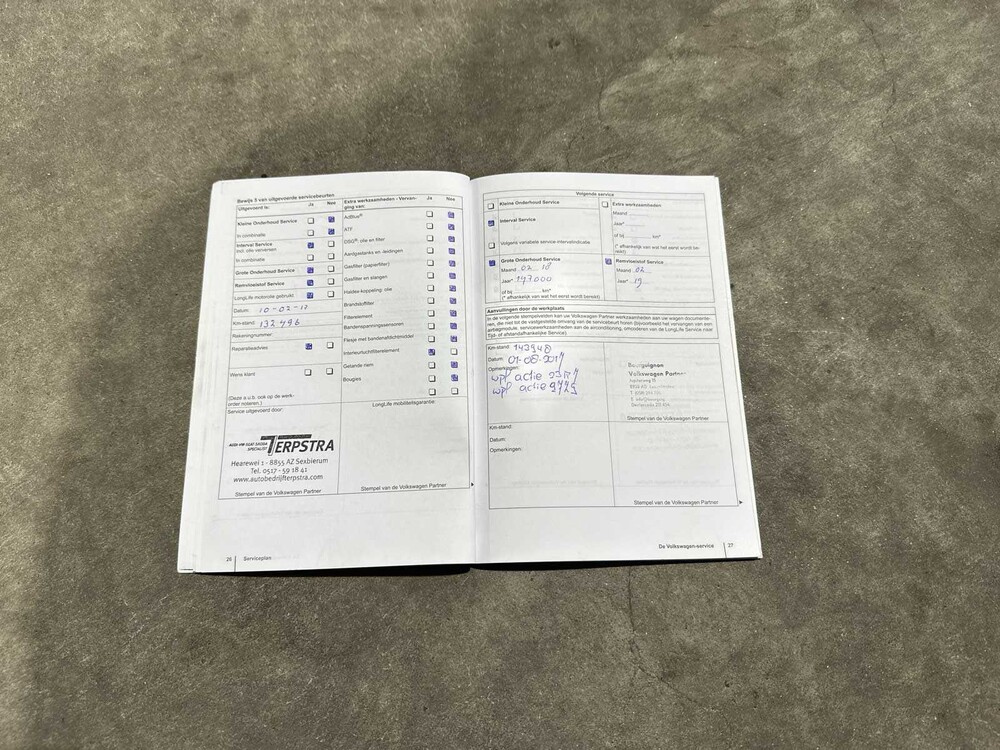 Bewijs 5 van uitgevoerde servicebeurten
Uitgevoerd is: Ja Nee
Kleine Onderhoud Service
In combinatie
Interval Service
incl. olie verversen
In combinatie
Grote Onderhoud Service
Remvloeistof Service
LongLife motorolie gebruikt
Datum: 10-02-17
Km-stand: 132496
Rekeningnummer:
Reparatieadvies
Wens klant:
(Deze a.u.b. ook op de werk-
order noteren.)
Service uitgevoerd door:
AUDI VW SEAT SKODA
SPECIALIST TERPSTRA
Hearewei 1 - 8855 AZ Sexbierum
Tel. 0517 - 59 18 41
www.autobedrijfterpstra.com
Stempel van de Volkswagen Partner
Extra werkzaamheden - Vervan-
ging van: Ja Nee
AdBlue®
ATF
DSG®: olie en filter
Aardgastanks en -leidingen
Gasfilter (papierfilter)
Gasfilter en slangen
Haldex-koppeling: olie
Brandstoffilter
Filterelement
Bandenspanningssensoren
Flesje met bandenafdichtmiddel
Interieurluchtfilterelement
Getande riem
Bougies
LongLife mobiliteitsgarantie:
Stempel van de Volkswagen Partner
26 Serviceplan
Volgende service
Kleine Onderhoud Service
Interval Service
Volgens variabele service-intervalindicatie
Grote Onderhoud Service
Maand 02 18
Jaar* 147.000
of bij km*
(* afhankelijk van wat het eerst wordt bereikt)
Extra werkzaamheden
Maand
Jaar*
of bij km*
(* afhankelijk van wat het eerst wordt be-
reikt)
Remvloeistof Service
Maand 02
Jaar* 19
Aanvullingen door de werkplaats
In de volgende stempelvelden kan uw Volkswagen Partner werkzaamheden aan uw wagen documente-
ren, die niet tot de vastgestelde omvang van de servicebeurt horen (bijvoorbeeld het vervangen van een
airbagmodule, servicewerkzaamheden aan de airconditioning, omcoderen van de LongLife Service naar
Tijd- of afstandsafhankelijke Service).
Km-stand: 143948
Datum: 01-08-2017
Opmerkingen:
wpf actie 23R7
wpf actie 9779
Bourguignon
Volkswagen Partner
Stempel van de Volkswagen Partner
Km-stand:
Datum:
Opmerkingen:
Stempel van de Volkswagen Partner
De Volkswagen-service 27